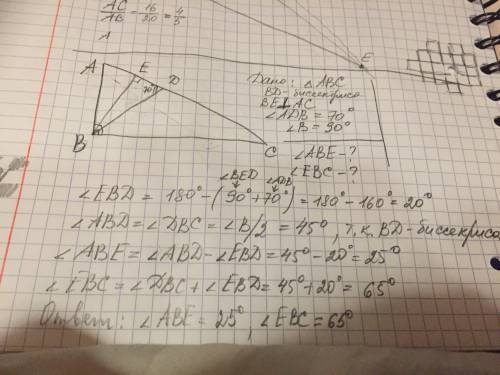 AC/AB = 16/20 = 4/5
A
E
A E D
70°
B C
Дано: △ABC
BD - биссектриса
BE⊥AC
∠ADB = 70°
∠B = 90°
∠ABE - ?
∠EBC - ?
∠BED ∠ADB
∠EBD = 180° - (90° + 70°) = 180° - 160° = 20°
∠ABD = ∠DBC = ∠B/2 = 45°, т.к. BD - биссектриса
∠ABE = ∠ABD - ∠EBD = 45° - 20° = 25°
∠EBC = ∠DBC + ∠EBD = 45° + 20° = 65°
Ответ: ∠ABE = 25°, ∠EBC = 65°